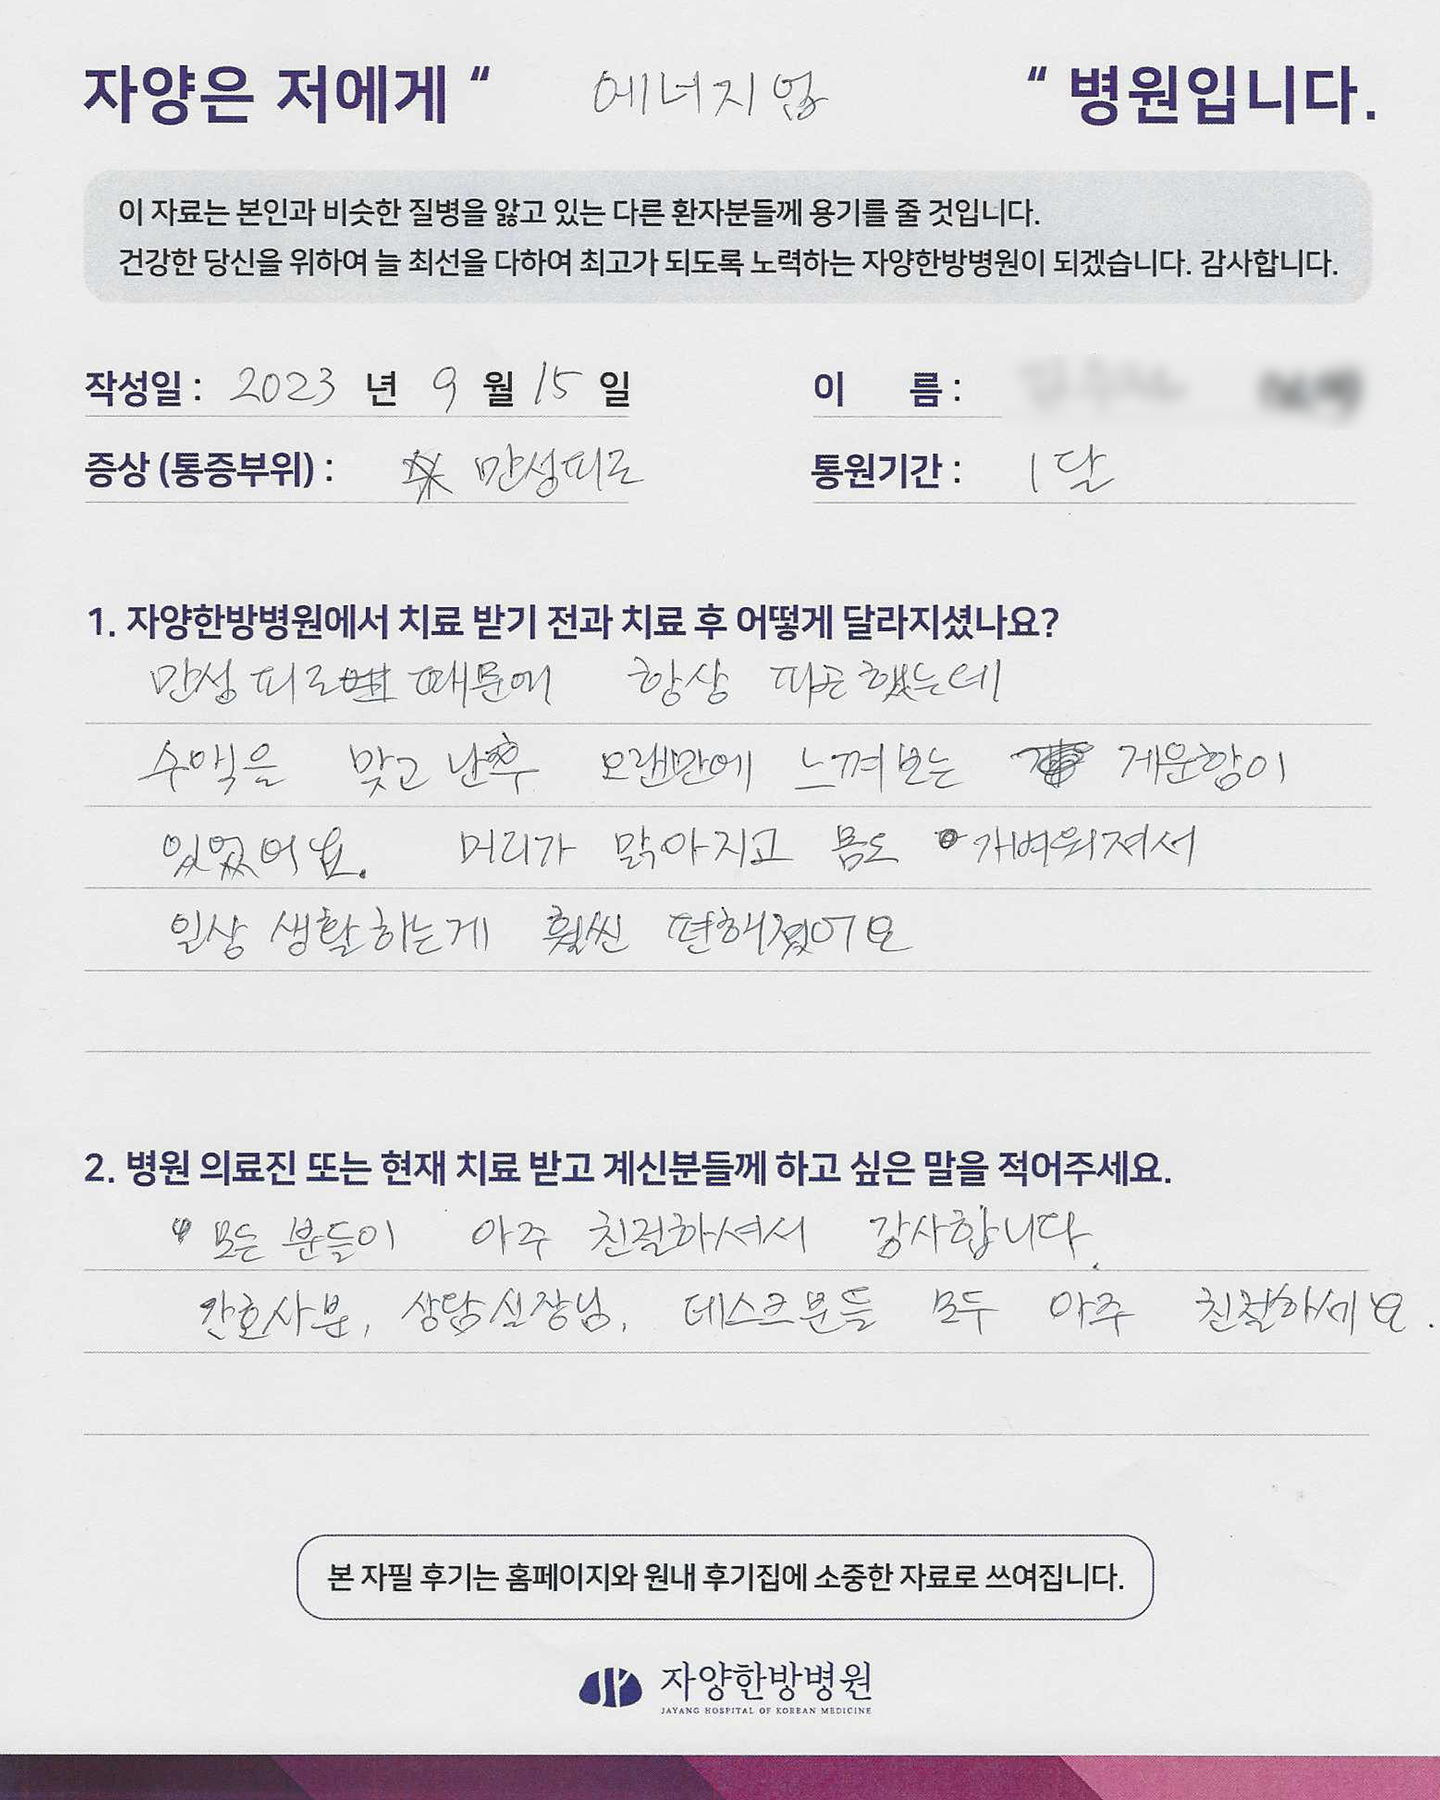 자양은 저에게 “ 에너지업 “ 병원입니다.
이 자료는 본인과 비슷한 질병을 앓고 있는 다른 환자분들께 용기를 줄 것입니다.
건강한 당신을 위하여 늘 최선을 다하여 최고가 되도록 노력하는 자양한방병원이 되겠습니다. 감사합니다.
작성일 : 2023 년 9 월 15 일 이 름 :
증상 (통증부위) : 만성피로 통원기간 : 1달
1. 자양한방병원에서 치료 받기 전과 치료 후 어떻게 달라지셨나요?
만성 피로 때문에 항상 피곤했는데
수액을 맞고 난후 오랜만에 느껴보는 개운함이
있었어요. 머리가 맑아지고 몸도 가벼워져서
일상 생활하는게 훨씬 편해졌어요
2. 병원 의료진 또는 현재 치료 받고 계신분들께 하고 싶은 말을 적어주세요.
모든 분들이 아주 친절하셔서 감사합니다.
간호사분, 상담실장님, 데스크분들 모두 아주 친절하세요.
본 자필 후기는 홈페이지와 원내 후기집에 소중한 자료로 쓰여집니다.
자양한방병원
JAYANG HOSPITAL OF KOREAN MEDICINE